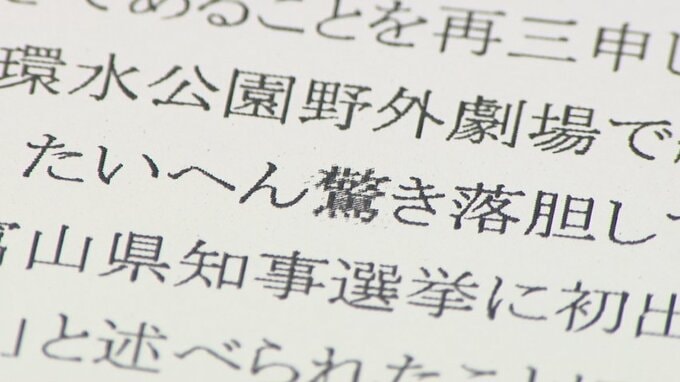 であることを再三申し
環水公園野外劇場で
たいへん驚き落胆して
富山県知事選挙に初出
」と述べられたことに